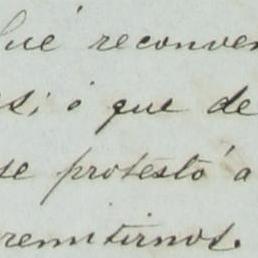 fué reconven
si; ó que de
se protestó a
remitirnos.